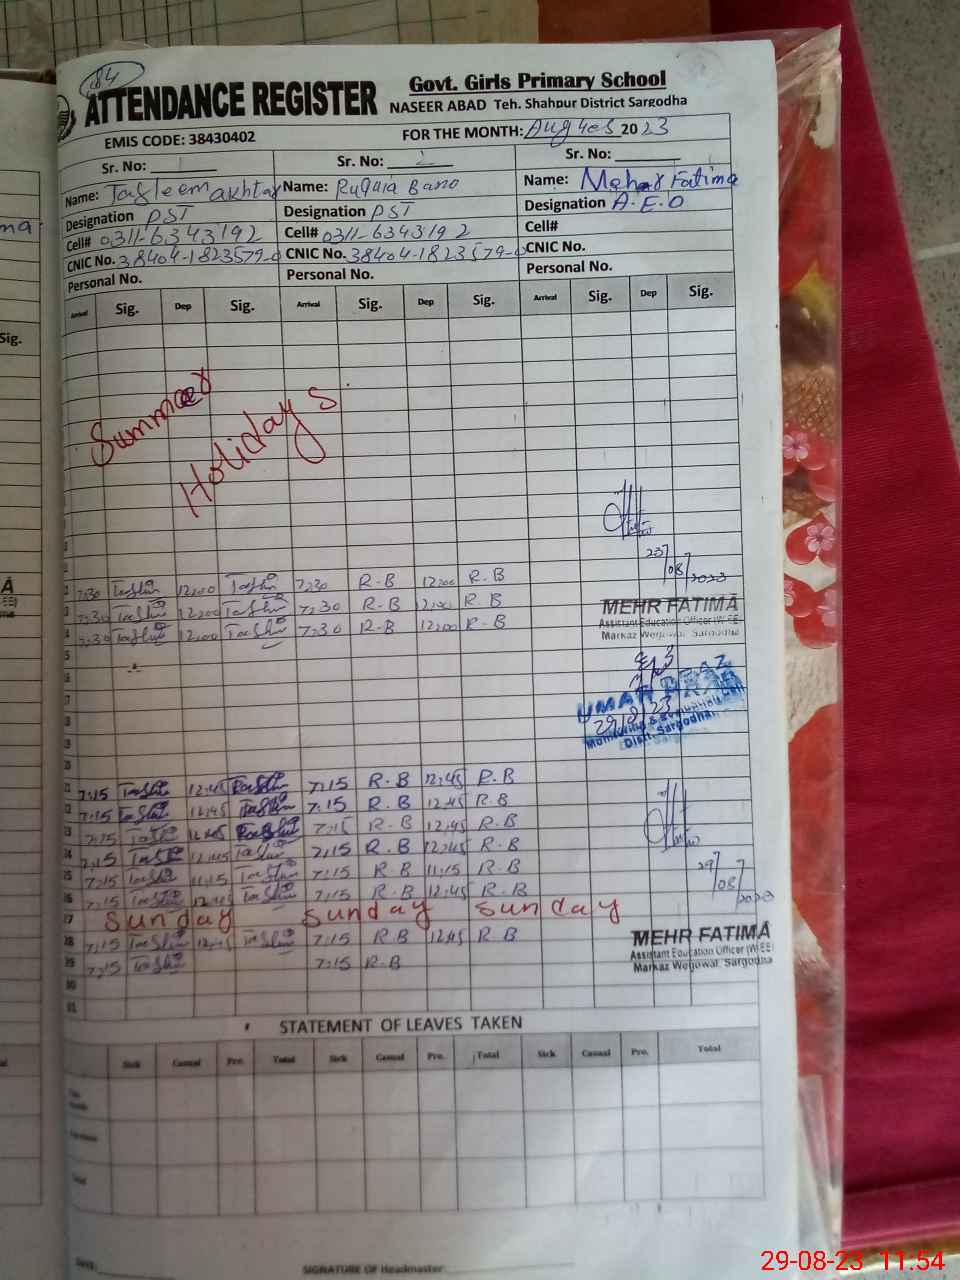 84
ATTENDANCE REGISTER
Govt. Girls Primary School
NASEER ABAD Teh. Shahpur District Sargodha
EMIS CODE: 38430402
FOR THE MONTH: August 2023
Sr. No: 1 Sr. No: 2 Sr. No:
Name: Tasleem akhtar Name: Ruqaia Bano Name: Mehar Fatima
Designation PST Designation PST Designation A.E.O
Cell# 0311-6343192 Cell# 0311-6343192 Cell#
CNIC No. 38404-1823579-0 CNIC No. 38404-1823579-0 CNIC No.
Personal No. Personal No. Personal No.
Arrival Sig. Dep Sig. Arrival Sig. Dep Sig. Arrival Sig. Dep Sig.
Summer
Holidays
23/08/2023
7:30 Taslim 12:00 Taslim 7:30 R.B 12:00 R.B
7:30 Taslim 12:00 Taslim 7:30 R.B 12:00 R.B
7:30 Taslim 12:00 Taslim 7:30 R.B 12:00 R.B
MEHR FATIMA
Assistant Education Officer (W-EE)
Markaz Wegowal, Sargodha
29/8/23
Distt. Sargodha
7:15 Taslim 12:45 Taslim 7:15 R.B 12:45 R.B
7:15 Taslim 12:45 Taslim 7:15 R.B 12:45 R.B
7:15 Taslim 12:45 Taslim 7:15 R.B 12:45 R.B
7:15 Taslim 12:45 Taslim 7:15 R.B 12:45 R.B
7:15 Taslim 11:15 Taslim 7:15 R.B 11:15 R.B
7:15 Taslim 12:45 Taslim 7:15 R.B 12:45 R.B
Sunday Sunday Sunday
28 7:15 Taslim 12:45 Taslim 7:15 R.B 12:45 R.B
7:15 Taslim 7:15 R.B
29/08/2023
MEHR FATIMA
Assistant Education Officer (W-EE)
Markaz Wegowal, Sargodha
STATEMENT OF LEAVES TAKEN
Sick Casual Pre. Total Sick Casual Pre. Total Sick Casual Pre. Total
SIGNATURE OF Headmaster
29-08-23 11:54